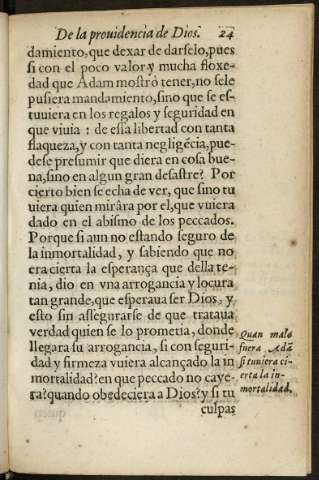 De la prouidencia de Dios. 24
damiento, que dexar de darselo, pues
si con el poco valor y mucha floxe-
dad que Adam mostrò tener, no se le
pusiera mandamiento, sino que se es-
tuuiera en los regalos y seguridad en
que viuia : de essa libertad con tanta
flaqueza, y con tanta negligẽcia, pue-
dese presumir que diera en cosa bue-
na, sino en algun gran desastre? Por
cierto bien se echa de ver, que sino tu
uiera quien mirâra por el, que vuiera
dado en el abismo de los peccados.
Porque si aun no estando seguro de
la inmortalidad, y sabiendo que no
era cierta la esperança que della te-
nia, dio en vna arrogancia y locura
tan grande, que esperaua ser Dios, y
esto sin assegurarse de que trataua
verdad quien se lo prometia, donde
llegara su arrogancia, si con seguri-
dad y firmeza vuiera alcançado la in
mortalidad? en que peccado no caye-
ra? quando obedeciera a Dios? y si tu
culpas
Quan mala
fuera Adã
si tuuiera ci-
erta la in-
mortalidad.